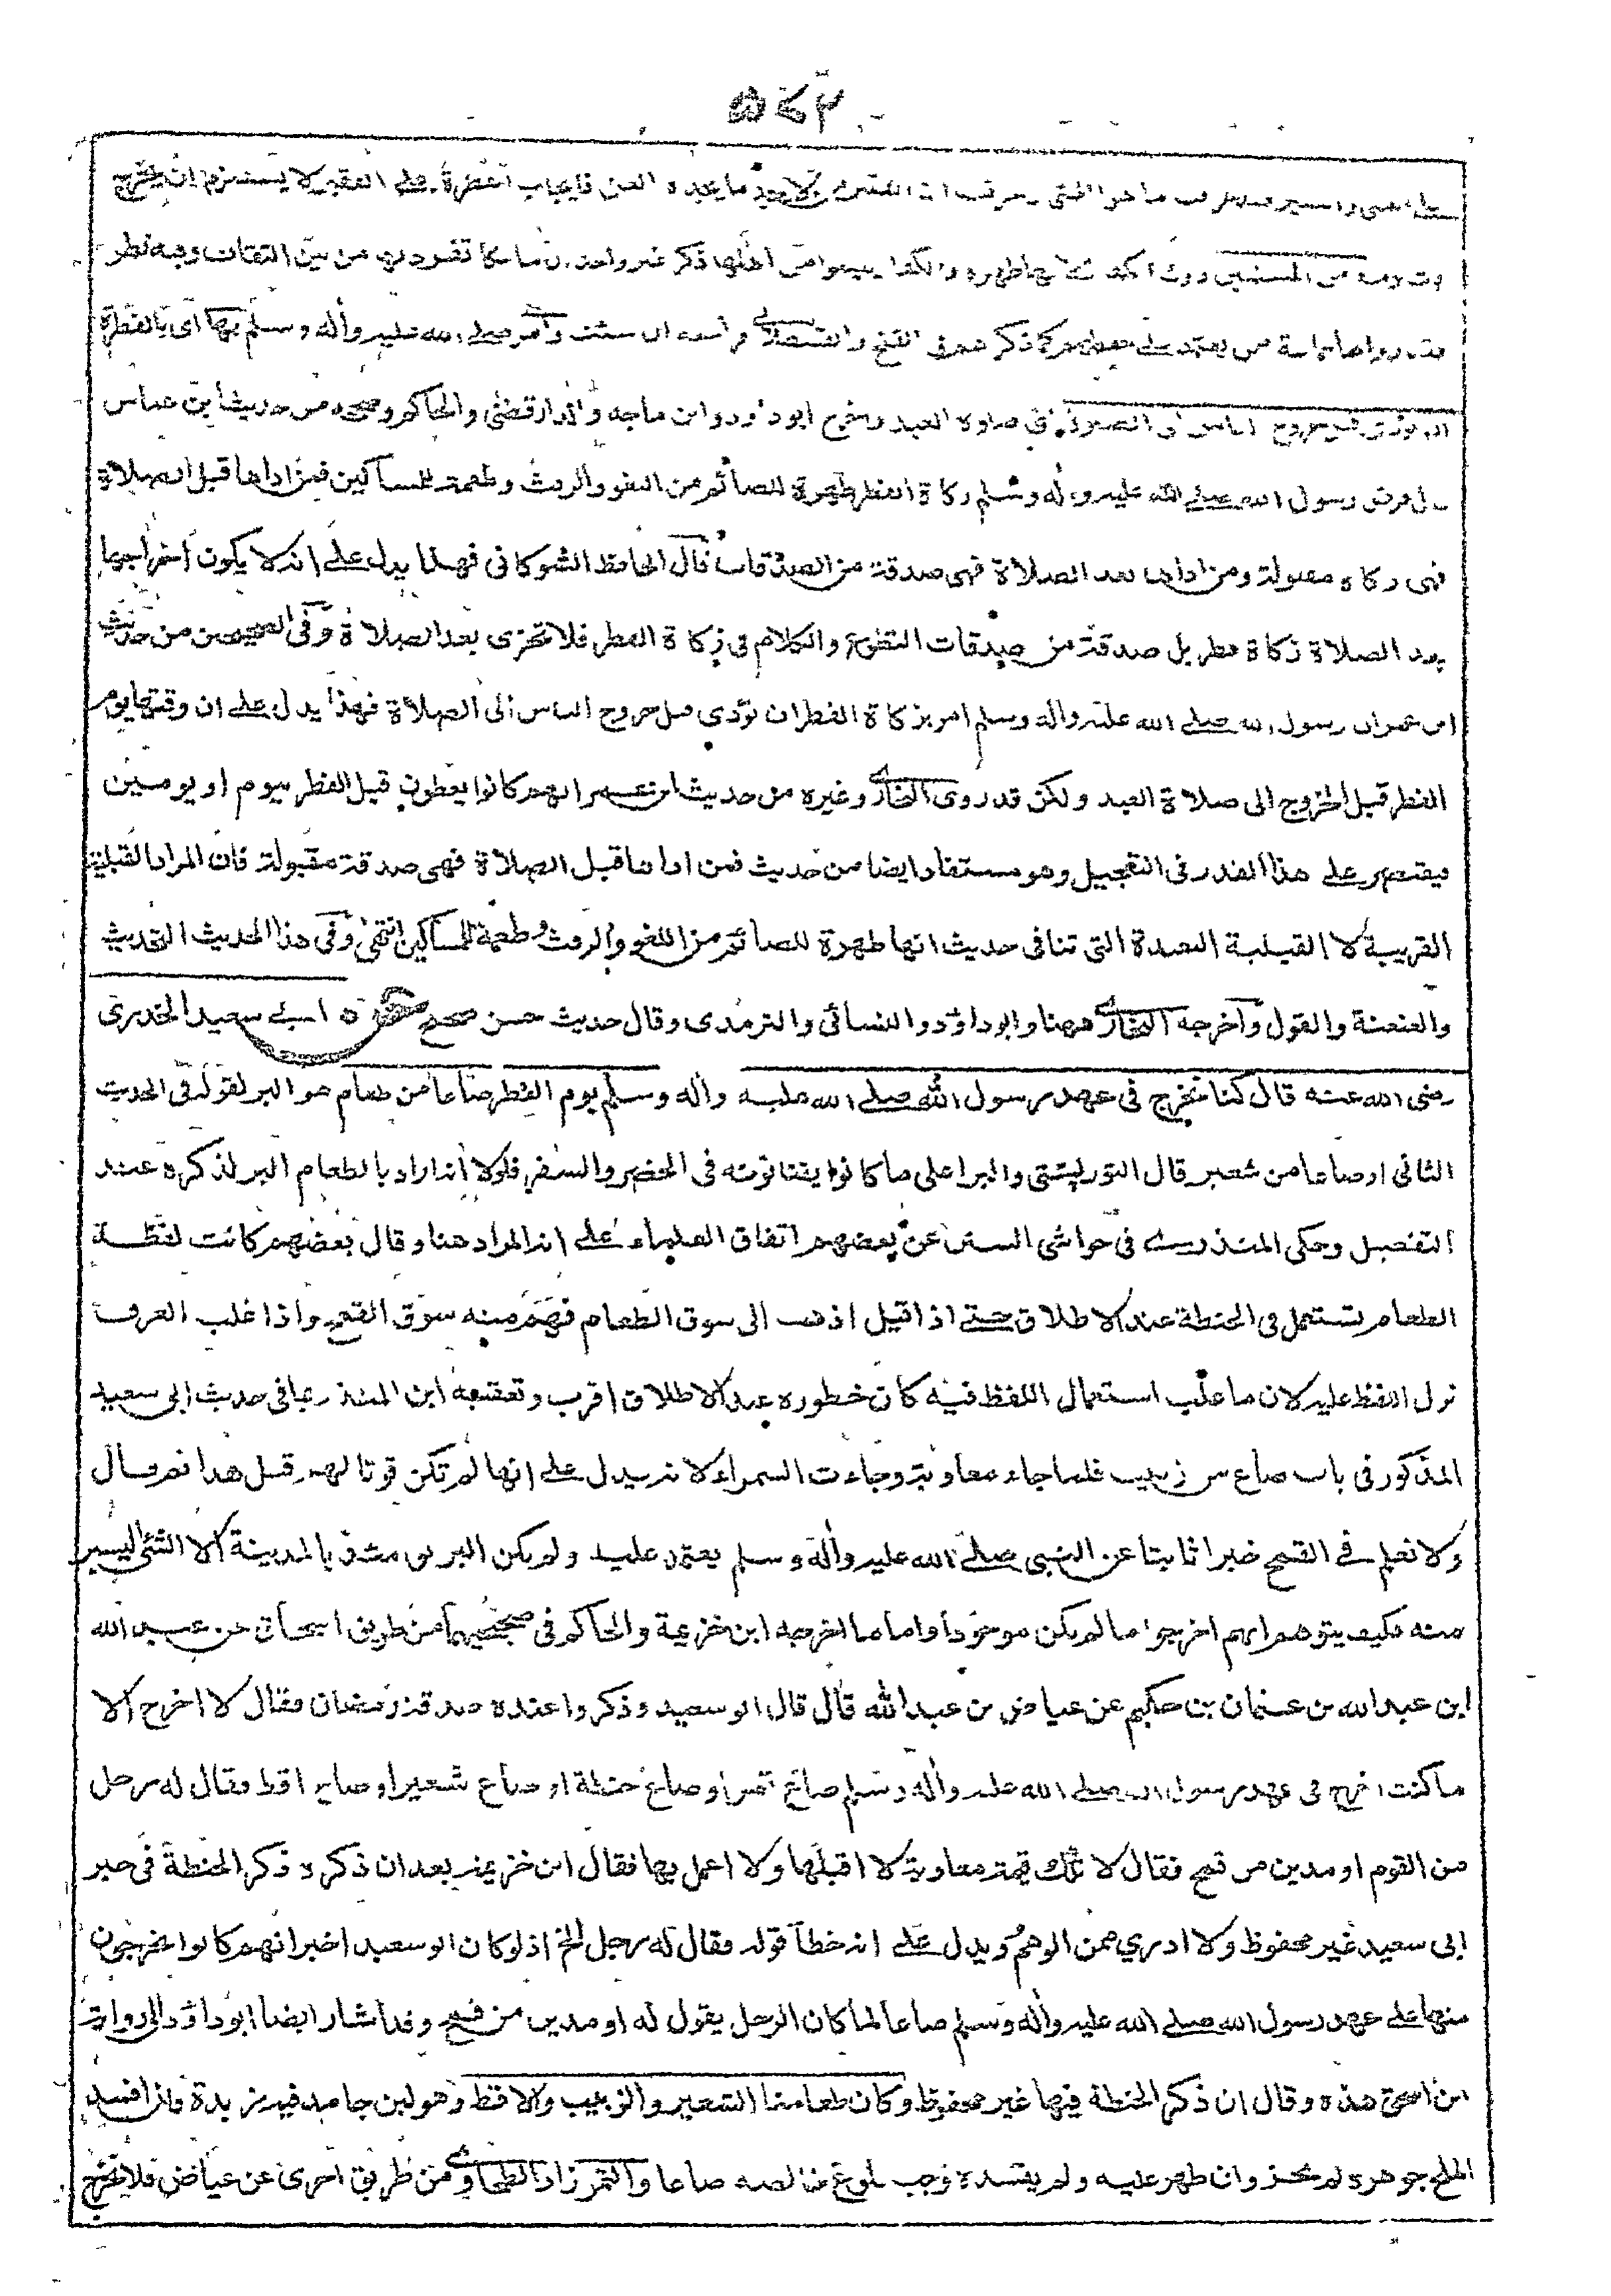 ٥٤٢
ما هو الحق فايجاب الفطرة على الفقير لا يستلزم ان يخرج
من المسلمين دون ذكر غير واحد ان مالكا تفرد بها من بين الثقات وفيه نظر
فقد رواها جماعة ممن يعتمد على حفظهم كما ذكرهم فى الفتح والقسطلانى وامر صلے الله عليه واله وسلم بها اى بالفطرة
ان تؤدى قبل خروج الناس الى الصلاة فى صلوة العيد وخرج ابو داود وابن ماجه والدارقطنى والحاكم وصححه من حديث ابن عباس
قال فرض رسول الله صلے الله عليه واله وسلم زكاة الفطر طهرة للصائم من اللغو والرفث وطعمة للمساكين فمن اداها قبل الصلاة
فهى زكاة مقبولة ومن اداها بعد الصلاة فهى صدقة من الصدقات قال الحافظ الشوكانى فهذا يدل على انه لا يكون اخراجها
بعد الصلاة زكاة فطر بل صدقة من صدقات التطوع والكلام فى زكاة الفطر فلا تجزى بعد الصلاة وفى الصحيحين من حديث
ابن عمر ان رسول الله صلے الله عليه واله وسلم امر بزكاة الفطر ان تؤدي قبل خروج الناس الى الصلاة فهذا يدل على ان وقتها يوم
الفطر قبل الخروج الى صلاة العيد ولكن قد روى البخارى وغيره من حديث ابن عمر انهم كانوا يعطون قبل الفطر بيوم او يومين
فيقتصر على هذا القدر فى التعجيل وهو مستفاد ايضا من حديث فمن اداها قبل الصلاة فهى صدقة مقبولة فان المراد القبلية
القريبة لا القبلية البعيدة التى تنافى حديث انها طهرة للصائم من اللغو والرفث وطعمة للمساكين انتهى وفى هذا الحديث التحديث
والعنعنة والقول واخرجه البخارى ههنا وابو داؤد والنسائى والترمذى وقال حديث حسن صحيح ابى سعيد الخدرى
رضى الله عنه قال كنا نخرج فى عهد رسول الله صلے الله عليه واله وسلم يوم الفطر صاعا من طعام هو البر لقوله فى الحديث
الثانى او صاعا من شعير قال التوربشتى والبر اعلى ما كانوا يقتاتونه فى الحضر والسفر فلولا انه اراد بالطعام البر لذكره عند
التفصيل وحكى المنذرى فى حواشى السنن عن بعضهم اتفاق العلماء على انه المراد هنا وقال بعضهم كانت لفظة
الطعام تستعمل فى الحنطة عند الاطلاق حتى اذا قيل اذهب الى سوق الطعام فهم منه سوق القمح واذا غلب العرف
نزل اللفظ عليه لان ما غلب استعمال اللفظ فيه كان خطوره عند الاطلاق اقرب وتعقبه ابن المنذر بما فى حديث ابى سعيد
المذكور فى باب صاع من زبيب فلما جاء معاوية وجاءت السمراء لانه يدل على انها لم تكن قوتا لهم قبل هذا ثم قال
ولا نعلم فى القمح خبرا ثابتا عن النبى صلے الله عليه واله وسلم يعتمد عليه ولم يكن البر يومئذ بالمدينة الا الشئ اليسير
منه فكيف يتوهم انهم اخرجوا ما لم يكن موجودا واما ما اخرجه ابن خزيمة والحاكم فى صحيحيهما من طريق اسحاق عن عبد الله
ابن عبد الله بن عثمان بن حكيم عن عياض بن عبد الله قال قال ابو سعيد وذكروا عنده صدقة رمضان فقال لا اخرج الا
ما كنت اخرج فى عهد رسول الله صلے الله عليه واله وسلم صاع تمر او صاع حنطة او صاع شعير او صاع اقط فقال له رجل
من القوم او مدين من قمح فقال لا تلك قيمة معاوية لا اقبلها ولا اعمل بها فقال ابن خزيمة بعد ان ذكره ذكر الحنطة فى خبر
ابى سعيد غير محفوظ ولا ادرى ممن الوهم ويدل على انه خطأ قوله فقال له رجل الخ اذ لو كان ابو سعيد اخبر انهم كانوا يخرجون
منها على عهد رسول الله صلے الله عليه واله وسلم صاعا لما كان الرجل يقول له او مدين من قمح وقد اشار ايضا ابو داؤد الى رواية
ابن اسحق هذه وقال ان ذكر الحنطة فيها غير محفوظ وكان طعامنا الشعير والزبيب والاقط وهو لبن جامد فيه زبدة فان افسد
الملح جوهره لم يجز وان ظهر عليه ولم يفسده وجب بلوغ خالصه صاعا والتمر زاد الطحاوى من طريق اخرى عن عياض فلا نخرج